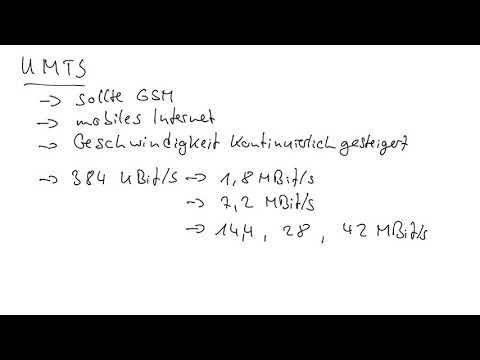 UMTS
→ sollte GSM
→ mobiles Internet
→ Geschwindigkeit kontinuierlich gesteigert
→ 384 kBit/s → 1,8 MBit/s
→ 7,2 MBit/s
→ 14,4 , 28 , 42 MBit/s